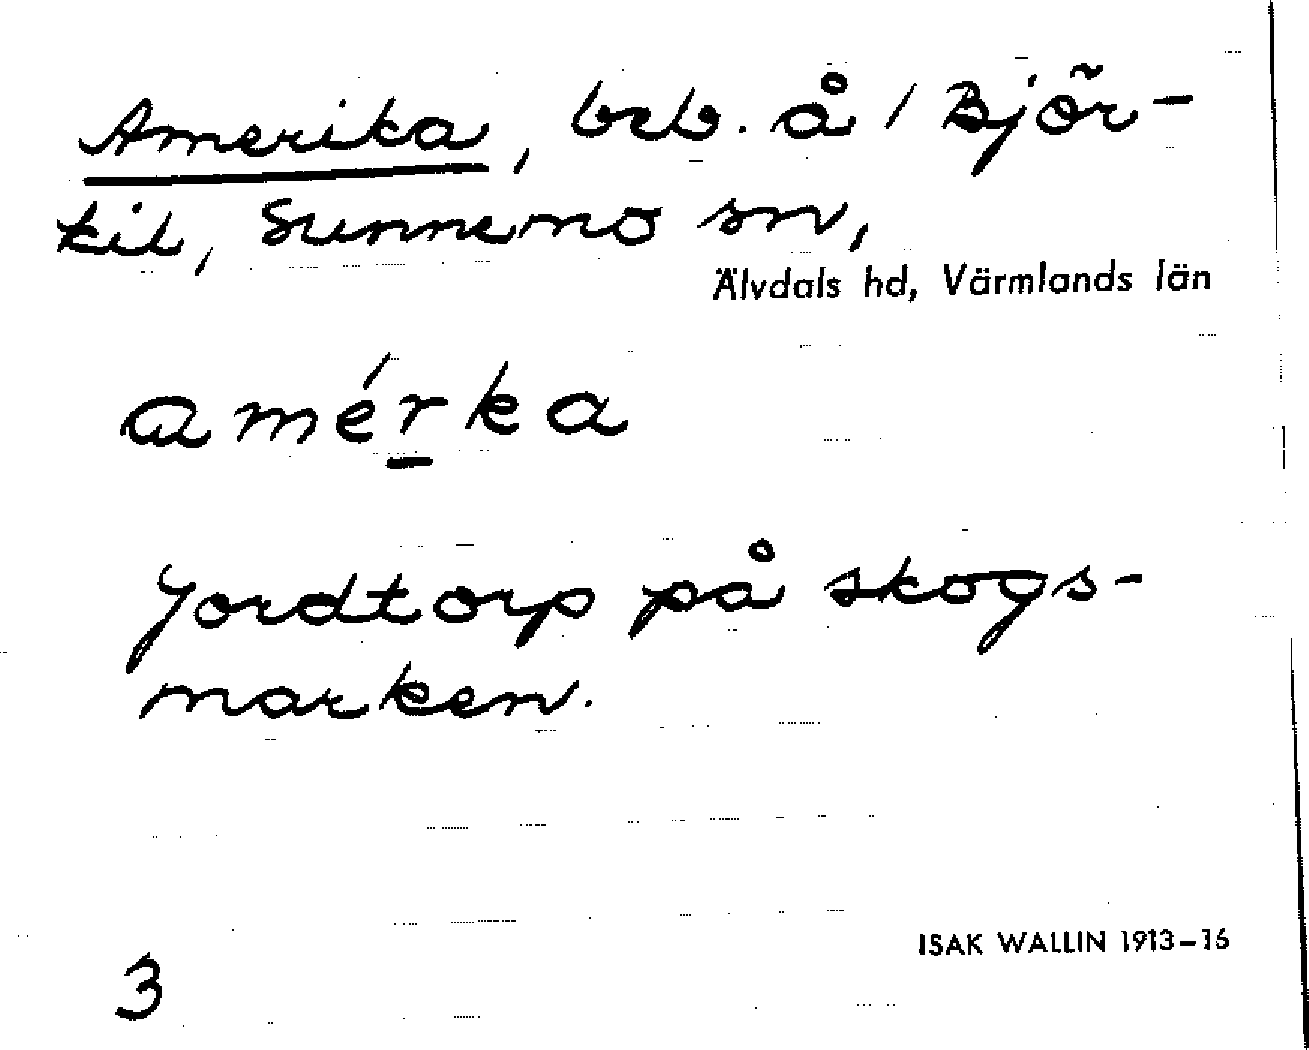 Amerika, beb. å / Björ-
kil, Sunnemo sn,
Älvdals hd, Värmlands län
amérka
Jordtorp på skogs-
marken.
ISAK WALLIN 1913-16
3